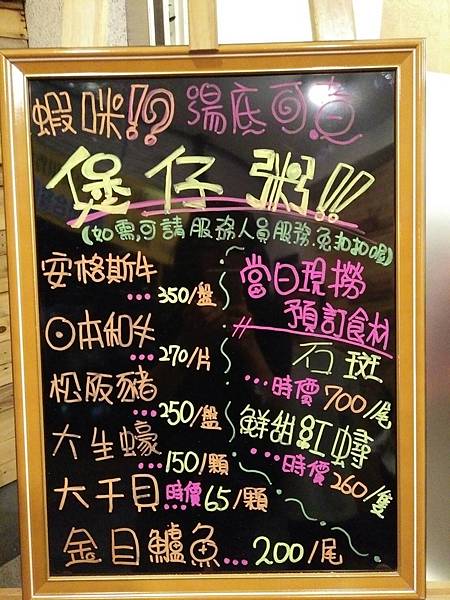 蝦咪!? 湯底可煮
煲仔粥!!
(如需,可請服務人員服務.免扣扣喔)
安格斯牛
...350/盤
日本和牛
...270/片
松阪豬
...250/盤
大生蠔
...150/顆
大干貝時價65/顆
金目鱸魚...200/尾
當日現撈
預訂食材
石斑
...時價700/尾
鮮甜紅蟳
...時價260/隻